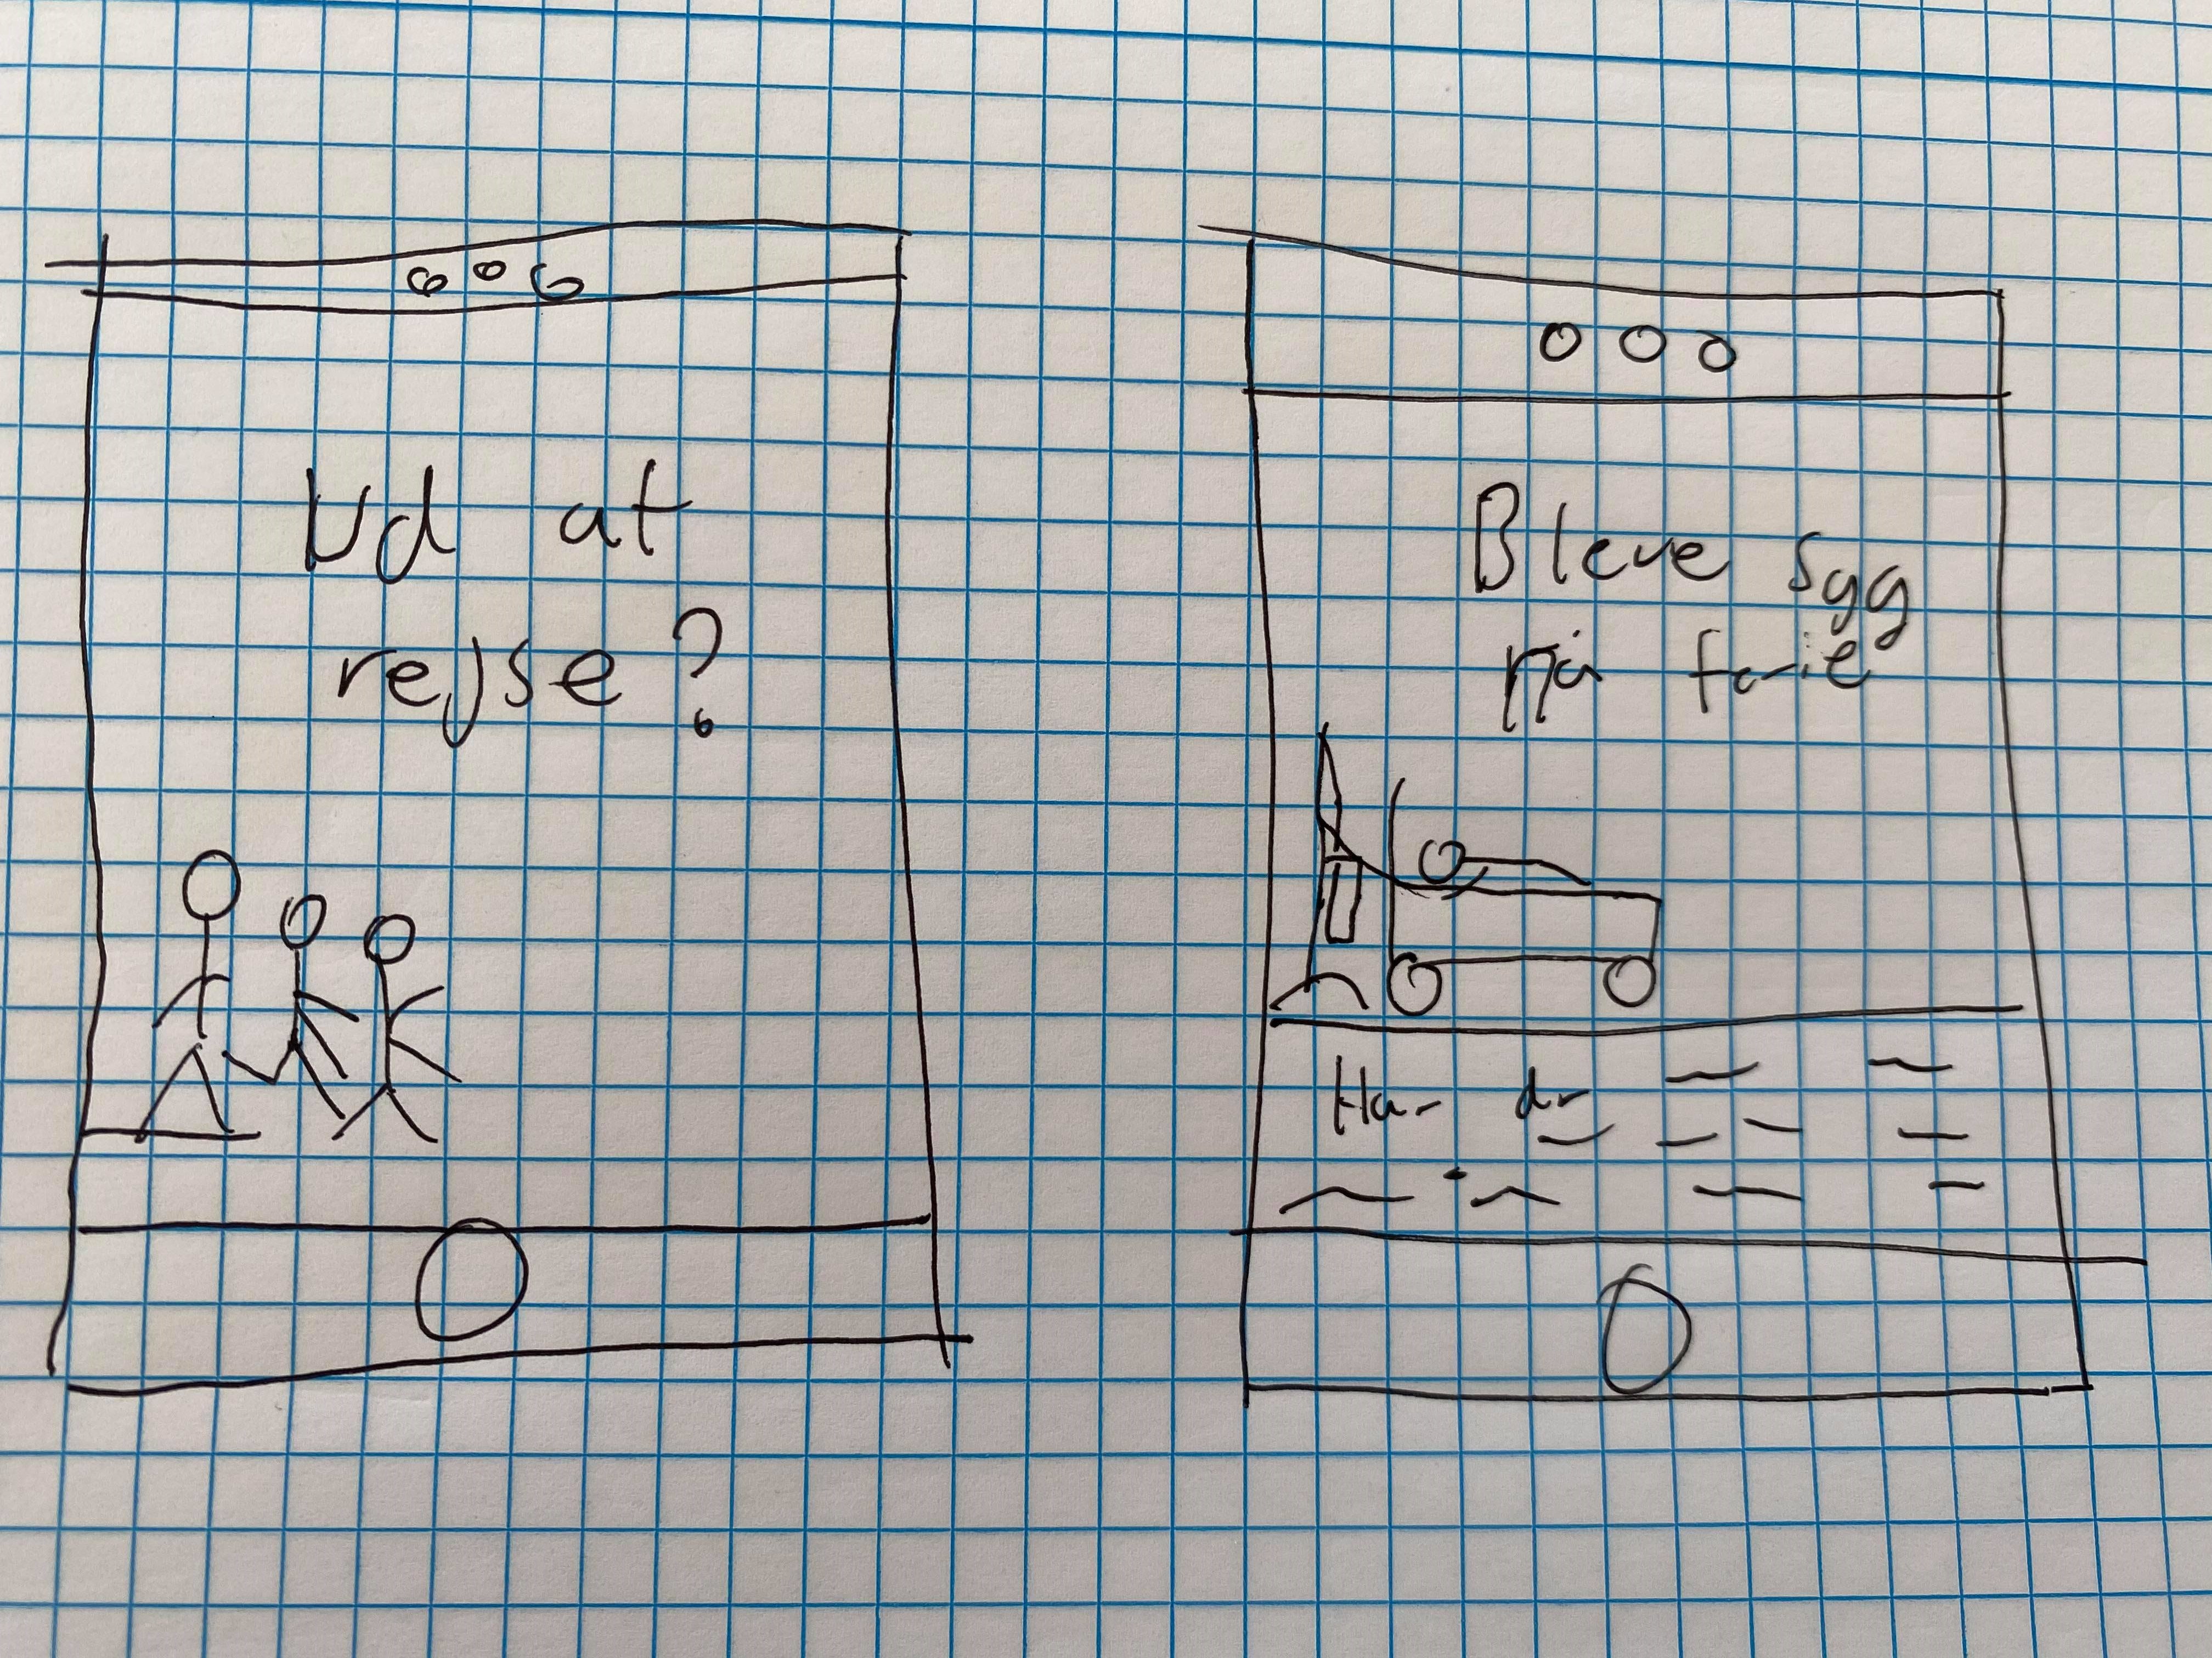 Ud at
rejse?
Bleve syg
på ferie
Har du